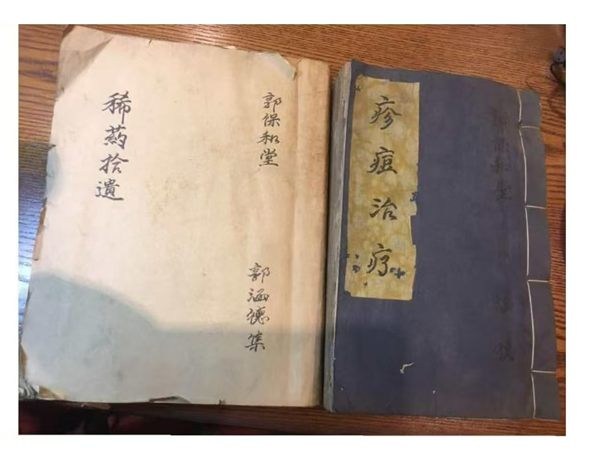 稀药拾遗
郭保和堂
郭涵德集
疹痘治疗